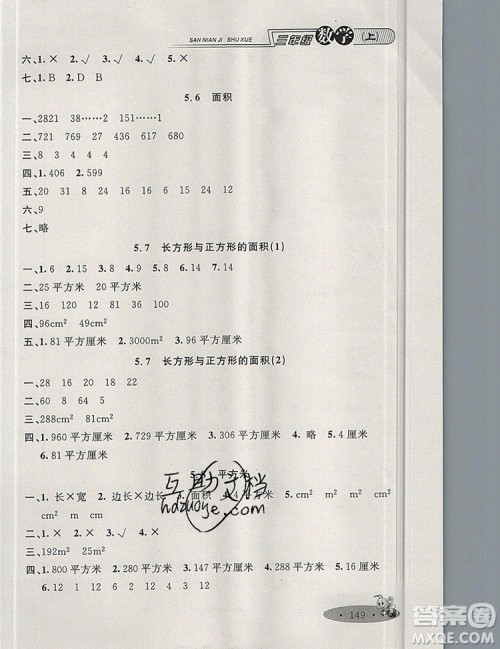 SAN NIAN JI SHU XUE 三年级 数学 (上)
六、1.× 2.√ 3.√ 4.√ 5.×
七、1.B 2.A
5.6 面积
一、2821 38……2 151……1
二、721 769 27 763 816 2944
三、8 3 4 4 4
四、1.406 2.599
五、20 31 8 24 16 12 16 6 2
六、9
七、略
5.7 长方形与正方形的面积(1)
一、1.6 2.15 3.8 4.9 5.12 6.14 7.14
二、25平方厘米 20平方厘米
三、16 120 12 81 36 100
四、96cm² 49cm²
五、1.81平方厘米 2.3000m² 3.81平方厘米
5.7 长方形与正方形的面积(2)
一、28 16 20 18 22
二、60 8 8 5
三、288cm² 81cm²
四、1.960平方厘米 2.729平方厘米 3.306平方厘米 4.略 5.4厘米
6.81平方厘米
平方米
一、1.长×宽 2.边长×边长 3.面积 4.4平方厘米 5.cm² m² cm
m² cm²
二、1.× 2.√ 3.√ 4.×
三、192m² 25m²
四、1.800平方厘米 2.210平方厘米 3.147平方厘米 4.288平方厘米 5.14
6.12 12 1 2 6 3 6 2
互助文档
hdzuoye.com
149
答案圈
MXQE.COM